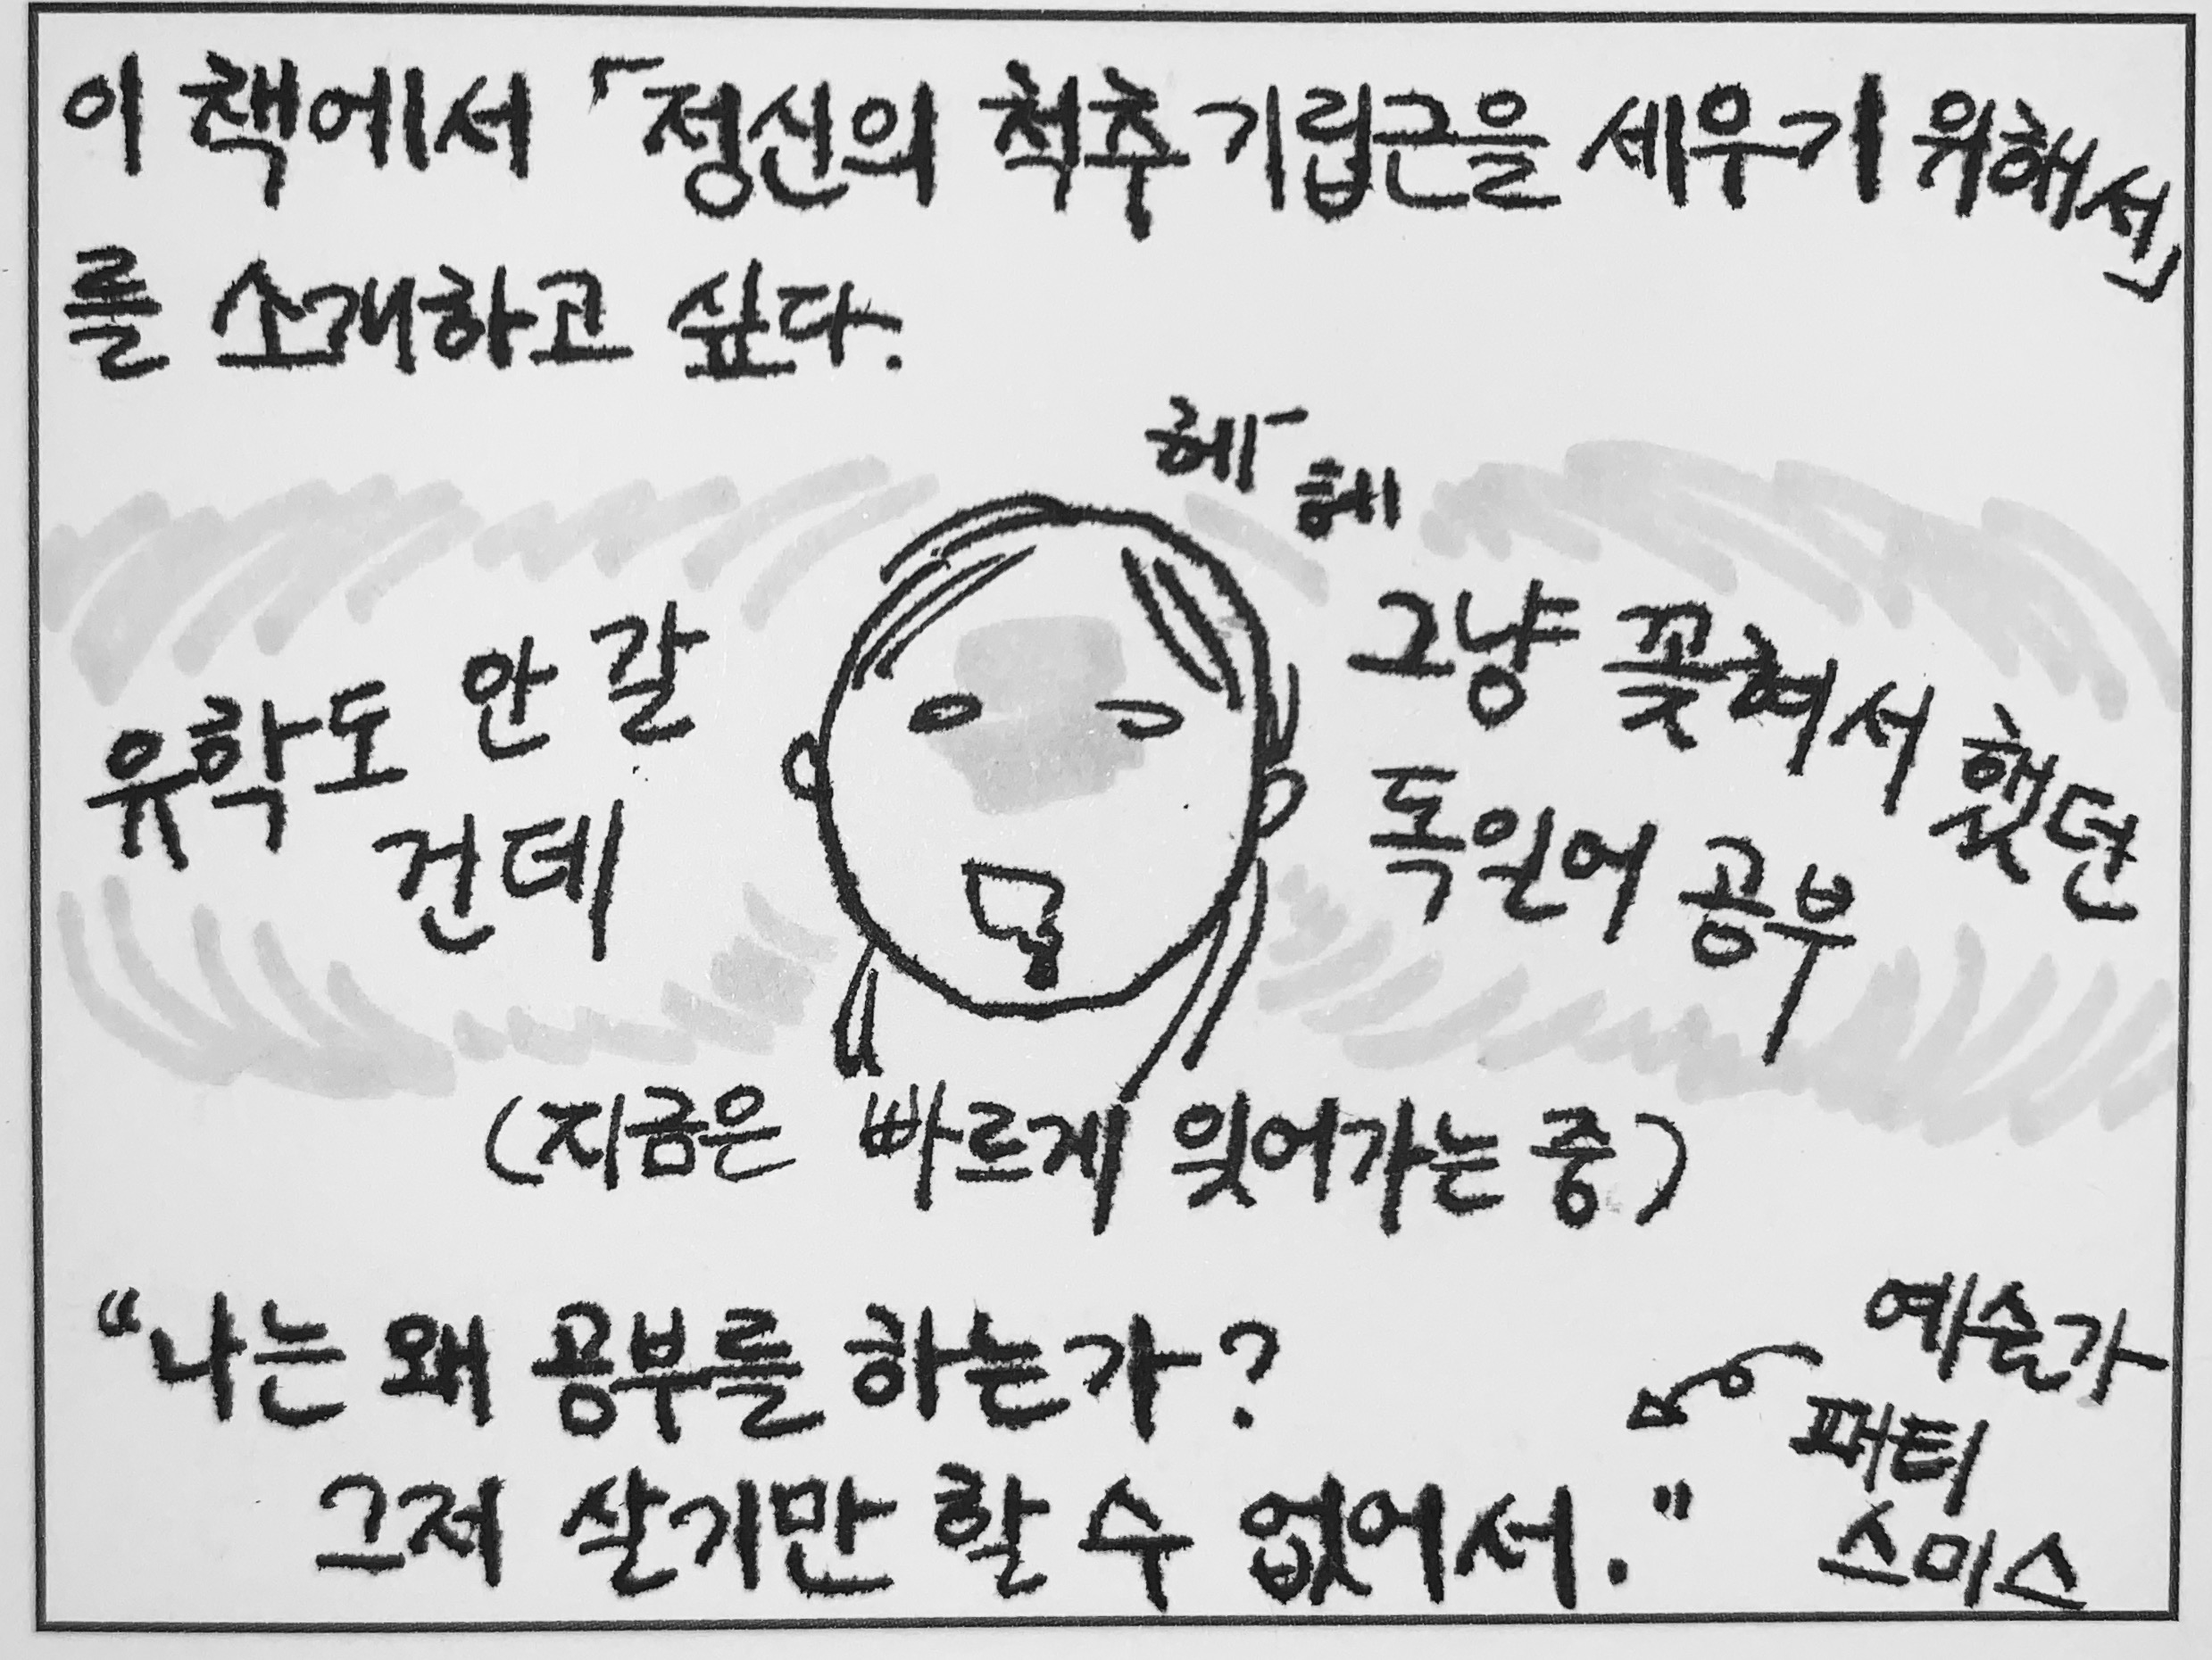 이 책에서 「정신의 척추 기립근을 세우기 위해서」
를 소개하고 싶다.
헤헤
유학도 안 갈
건데
그냥 꽂혀서 했던
독일어 공부
(지금은 빠르게 잊어가는 중)
“나는 왜 공부를 하는가?
그저 살기만 할 수 없어서.”
예술가
패티
스미스